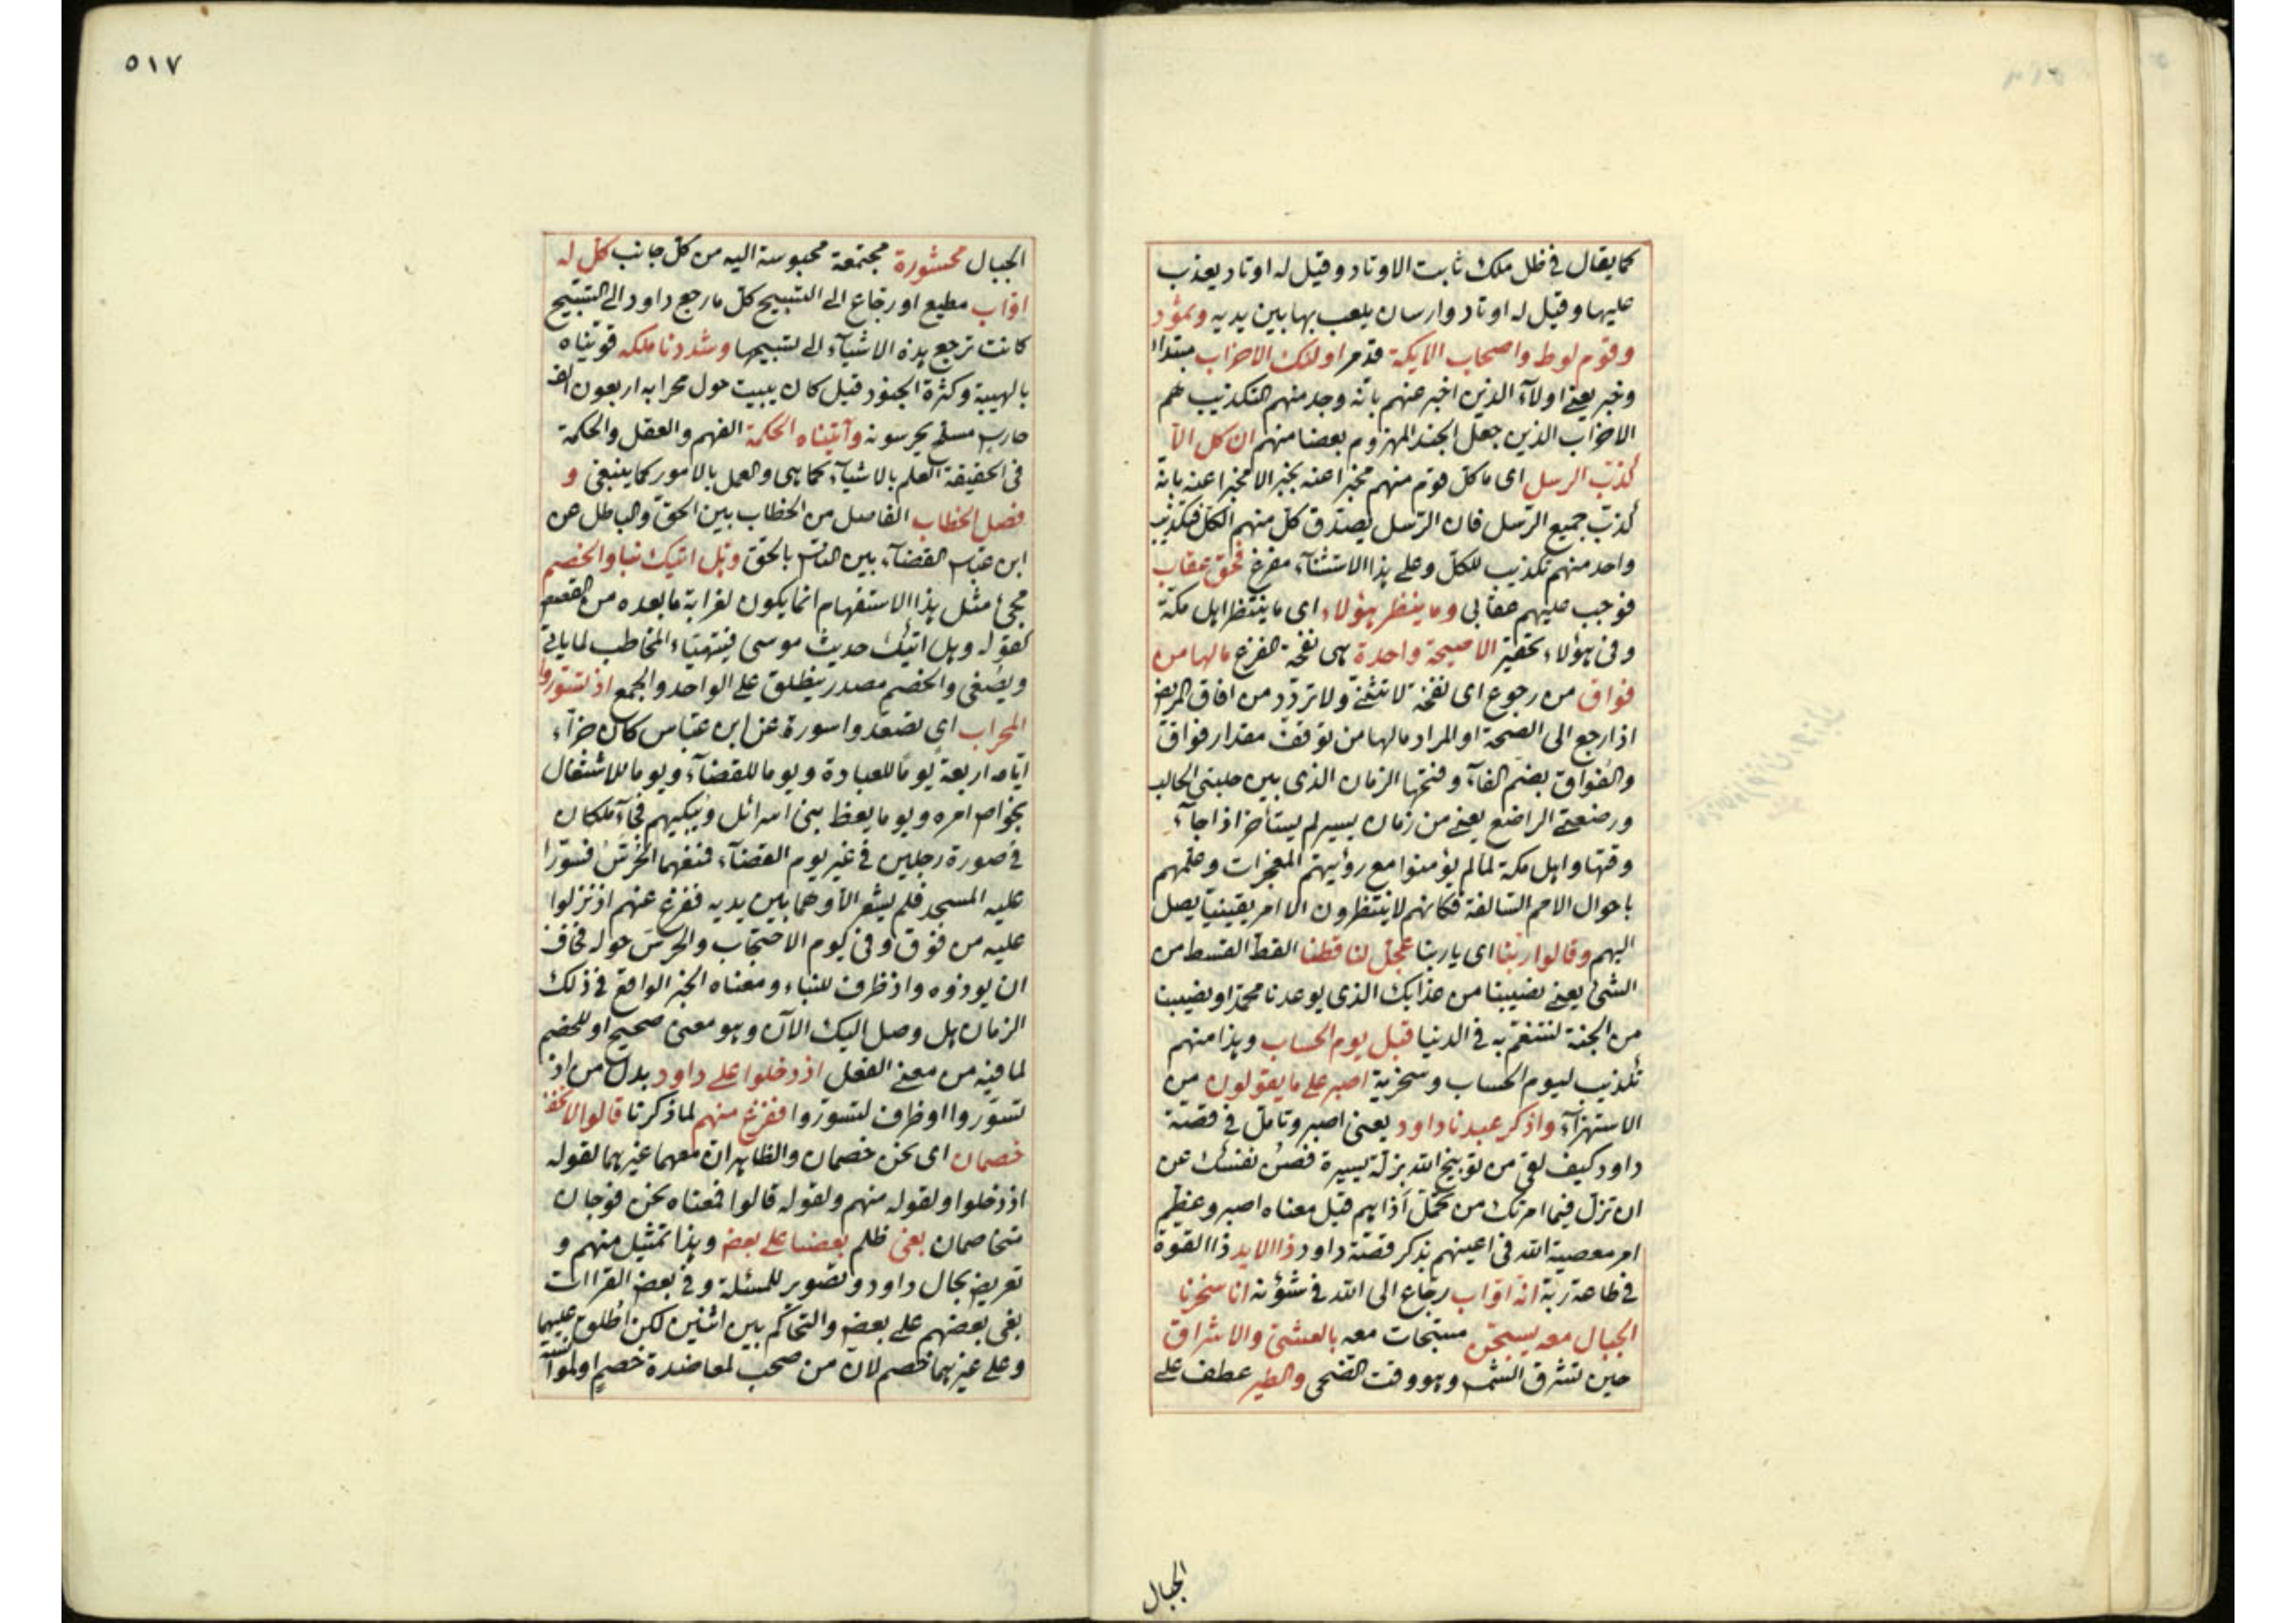 كما يقال في ظل ملك ثابت الاوتاد وقيل له اوتاد يعذب
عليها وقيل له اوتاد وارسان يلعب بها بين يديه وثمود
وقوم لوط واصحاب الايكة قد مر اولئك الاحزاب مبتدا
وخبر يعني اولآء الذين اخبر عنهم بانه وجد منهم التكذيب هم
الاحزاب الذين جعل الجند المهزوم بعضا منهم ان كل الا
كذب الرسل اى ما كل قوم منهم مخبرا عنه بخبر الا مخبرا عنه بانه
كذب جميع الرسل فان الرسل يصدق كل منهم الكل فتكذيب
واحد منهم تكذيب للكل وعلى هذا الاستثنآء مفرغ فحق عقاب
فوجب عليهم عقابي وما ينظر هؤلاء اى ما ينتظر اهل مكة
وفى هؤلاء تحقير الا صيحة واحدة هى نفخة الفزع مالها من
فواق من رجوع اى نفخة لا تثنى ولا تردد من افاق المريض
اذا رجع الى الصحة او المراد مالها من توقف مقدار فواق
والفواق بضم الفآء وفتحها الزمان الذى بين حلبتي الحالب
ورضعتي الراضع يعني من زمان يسير لم يستأخر اذا جآء
وقتها واهل مكة لما لم يؤمنوا مع رؤيتهم المعجزات وعلمهم
باحوال الامم السالفة فكانهم لا ينتظرون الا امر يقينيا يصل
اليهم وقالوا ربنا اى يا ربنا عجل لنا قطنا القط القسط من
الشئ يعني نصيبنا من عذابك الذى يوعدنا محمد او نصيبنا
من الجنة لنتنعم به فى الدنيا قبل يوم الحساب وهذا منهم
تكذيب ليوم الحساب وسخرية اصبر على ما يقولون من
الاستهزآء واذكر عبدنا داود يعنى اصبر وتامل في قصة
داود كيف لقى من توبيخ الله بزلة يسيرة فصن نفسك عن
ان تزل فيما امرتك من تحمل أذاهم قيل معناه اصبر وعظم
امر معصية الله فى اعينهم بذكر قصة داود ذا الايد ذا القوة
في طاعة ربه انه اواب رجاع الى الله فى شؤنه انا سخرنا
الجبال معه يسبحن مسبحات معه بالعشى والاشراق
حين تشرق الشمس وهو وقت الضحى والطير عطف على
الجبال
٥١٧
الجبال محشورة مجتمعة محبوسة اليه من كل جانب كل له
اواب مطيع او رجاع الى التسبيح كل ما رجع داود الى التسبيح
كانت ترجع هذه الاشيآء الى تسبيحها وشددنا ملكه قويناه
بالهيبة وكثرة الجنود قيل كان يبيت حول محرابه اربعون الف
حارس مسلح يحرسونه وآتيناه الحكمة الفهم والعقل والحكمة
فى الحقيقة العلم بالاشيآء كما هى والعمل بالامور كما ينبغى و
فصل الخطاب الفاصل من الخطاب بين الحق والباطل عن
ابن عباس القضآء بين الناس بالحق وهل اتيك نبأ والخصم
مجئ مثل هذا الاستفهام انما يكون لغرابة ما بعده من القصص
كقوله وهل اتيك حديث موسى فيتهيأ المخاطب لما ياتى
ويصغى والخصم مصدر يطلق على الواحد والجمع اذ تسوروا
المحراب اى تصعدوا سورة عن ابن عباس كان جزآء
ايامه اربعة يوما للعبادة ويوما للقضآء ويوما للاشتغال
بخواص امره ويوما يعظ بنى اسرائل ويبكيهم فجآء ملكان
في صورة رجلين في غير يوم القضآء فمنعهما الحرس فتسورا
عليه المسجد فلم يشعر الا وهما بين يديه ففزع عنهم اذ نزلوا
عليه من فوق وفى يوم الاحتجاب والحرس حوله فخاف
ان يوذوه واذ ظرف للنباء ومعناه الخبر الواقع في ذلك
الزمان هل وصل اليك الآن وهو معنى صحيح او للخصم
لما فيه من معنى الفعل اذ دخلوا على داود بدل من اذ
تسوروا او ظرف لتسوروا ففزع منهم لما ذكرنا قالوا لا تخف
خصمان اى نحن خصمان والظاهر ان معهما غيرهما لقوله
اذ دخلوا ولقوله منهم ولقوله قالوا فمعناه نحن فوجان
متخاصمان بغى ظلم بعضنا على بعض وهذا تمثيل منهم و
تعريض بحال داود وتصوير للمسئلة وفي بعض القراات
بغى بعضهم على بعض والتحاكم بين اثنين لكن اطلق عليهما
وعلى غيرهما خصم لان من صحب لمعاضدة خصم او لموآنسة